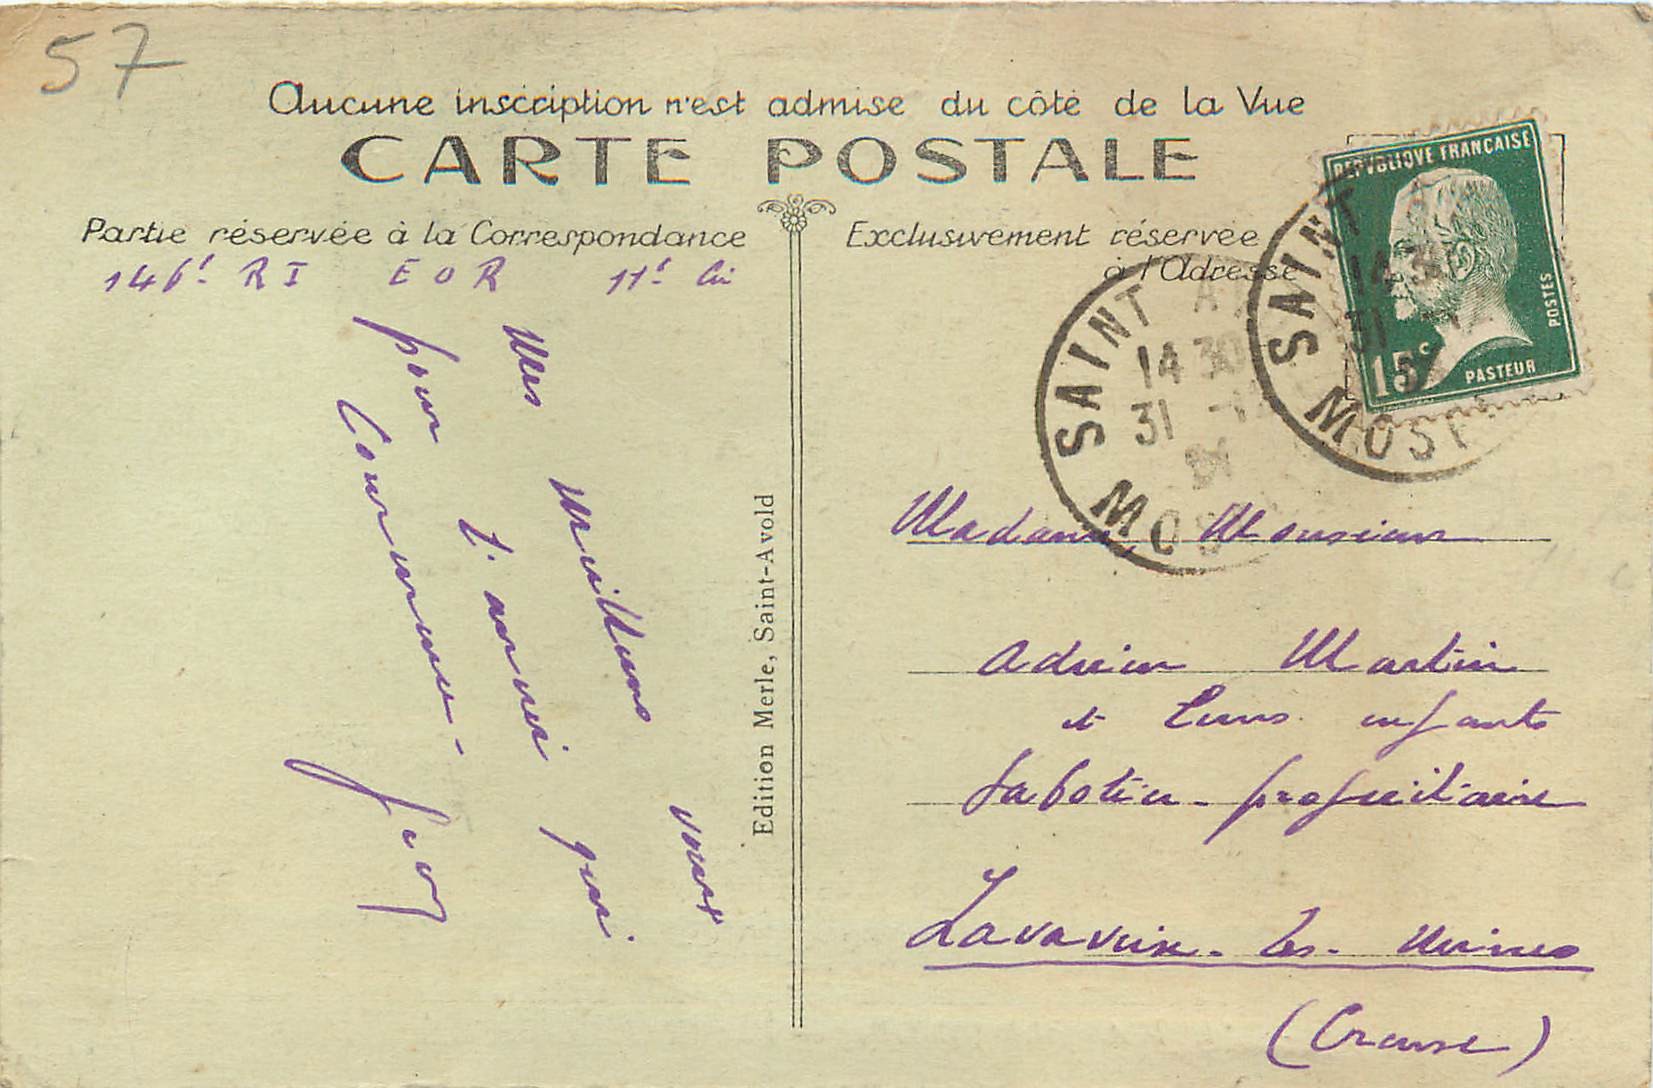 57
Aucune inscription n'est admise du côté de la Vue
CARTE POSTALE
Partie réservée à la Correspondance
Exclusivement réservée
à l'Adresse
146e RI EOR 11e Cie
Mes meilleurs vœux
pour l'année qui
commence -
Edition Merle, Saint-Avold
REPVBLIQVE FRANÇAISE
POSTES
15c
PASTEUR
SAINT AV
14 30
31
MOS
SAINT
14 30
31
MOSE
Madame, Monsieur
Adrien Martin
et leurs enfants
Sabotier - propriétaire
Lavaveix-les-Mines
(Creuse)